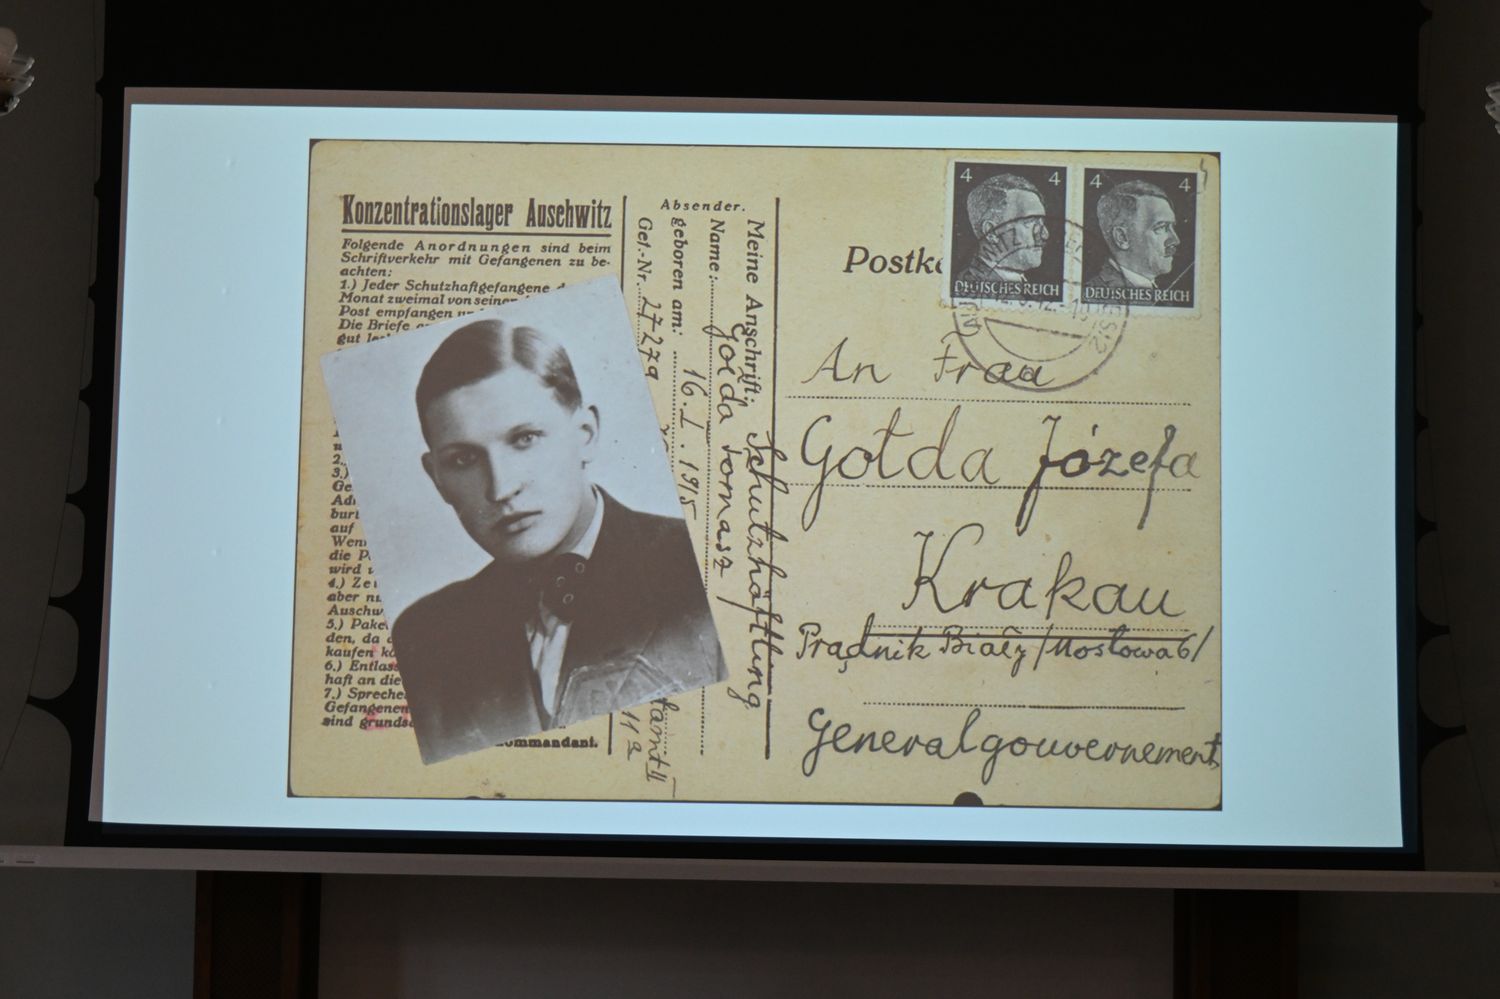 Konzentrationslager Auschwitz
Folgende Anordnungen sind beim
Schriftverkehr mit Gefangenen zu be-
achten:
1.) Jeder Schutzhaftgefangene
Monat zweimal von seinen
Post empfangen
Die Briefe
gut
2.
3.)
Ge
Adr
burt
auf
Wenn
die P
wird
4.) Ze
aber nu
Auschw
5.) Pake
den, da
kaufen kö
6.) Entlass
haft an die
7.) Spreche
Gefangenen
sind grunds
ommandant.
Absender.
Meine Anschrift: Schutzhäftling
Name: Gołda Tomasz
geboren am: 16. I. 1915
Gef.-Nr. 27279
11a
Postk
4 4
DEUTSCHES REICH
4 4
DEUTSCHES REICH
An Frau
Gołda Józefa
Krakau
Prądnik Biały /Mostowa 6/
Generalgouvernement